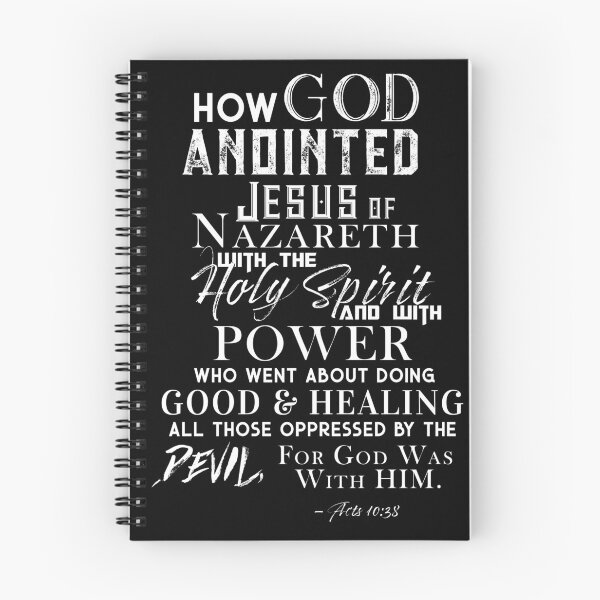 HOW GOD
ANOINTED
JESUS OF
NAZARETH
WITH THE
Holy Spirit
AND WITH
POWER
WHO WENT ABOUT DOING
GOOD & HEALING
ALL THOSE OPPRESSED BY THE
DEVIL, FOR GOD WAS
WITH HIM.
– Acts 10:38